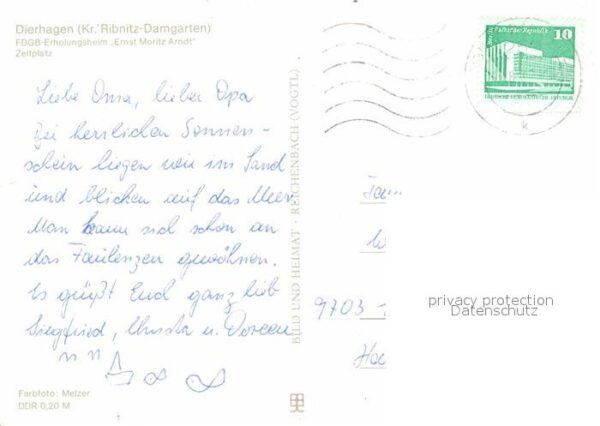 Dierhagen (Kr. Ribnitz-Damgarten)
FDGB-Erholungsheim „Ernst Moritz Arndt"
Zeltplatz
Liebe Oma, lieber Opa
Bei herrlichen Sonnen-
schein liegen wir im Sand
und blicken auf das Meer.
Man kann sich schon an
das Faulenzen gewöhnen.
Es grüßt Euch ganz lieb
Siegfried, Ursula u. Doreen
Farbfoto: Melzer
DDR 0,20 M
BILD UND HEIMAT · REICHENBACH (VOGTL)
10
Berlin, Palast der Republik
DEUTSCHE DEMOKRATISCHE REPUBLIK
k
Fam
9703
privacy protection
Datenschutz